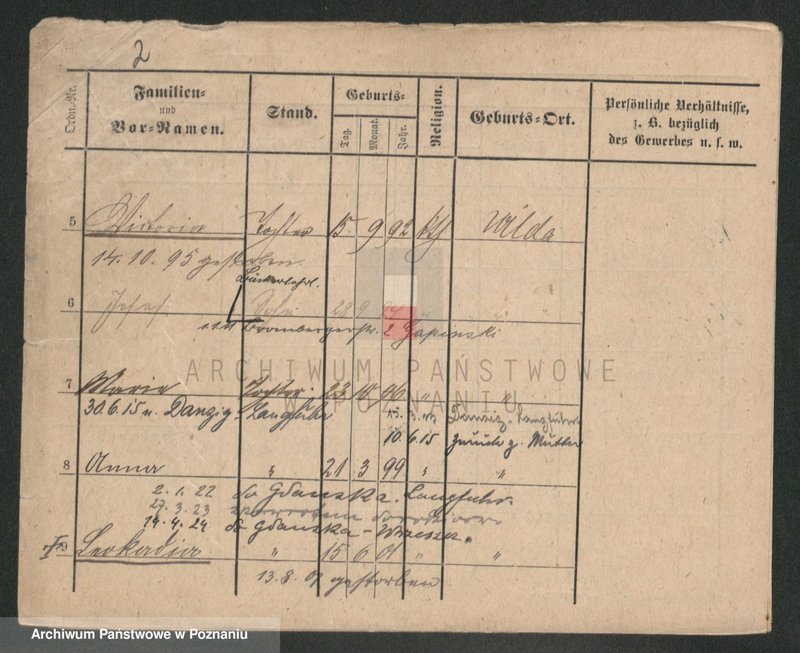 2
Ordn.-Nr.
Familien-
und
Vor-Namen.
Stand.
Geburts-
Tag. Monat. Jahr.
Religion.
Geburts-Ort.
Persönliche Verhältnisse,
z. B. bezüglich
des Gewerbes u. s. w.
5 Victoria Tochter 15 9 92 kth Wilda
14. 10. 95 gestorben.
Bäckerlehrl.
6 Josef Sohn 28 9 "
Brombergerstr. 2 Gapinski
ARCHIWUM PAŃSTWOWE
W POZNANIU
7 Marie Tochter 23 10 96 " "
30.6.15 n. Danzig-Langfuhr 15. 3. Danzig-Langfuhr
10.6.15 zurück z. Mutter
8 Anna " 21 3 99 " "
2. 1. 22 do Gdańska. Langfuhr.
27. 3. 23
14. 4. 24 do Gdańska-Wrzeszcz.
9 Leokadia " 15 6 01 " "
13. 8. 01 gestorben
Archiwum Państwowe w Poznaniu